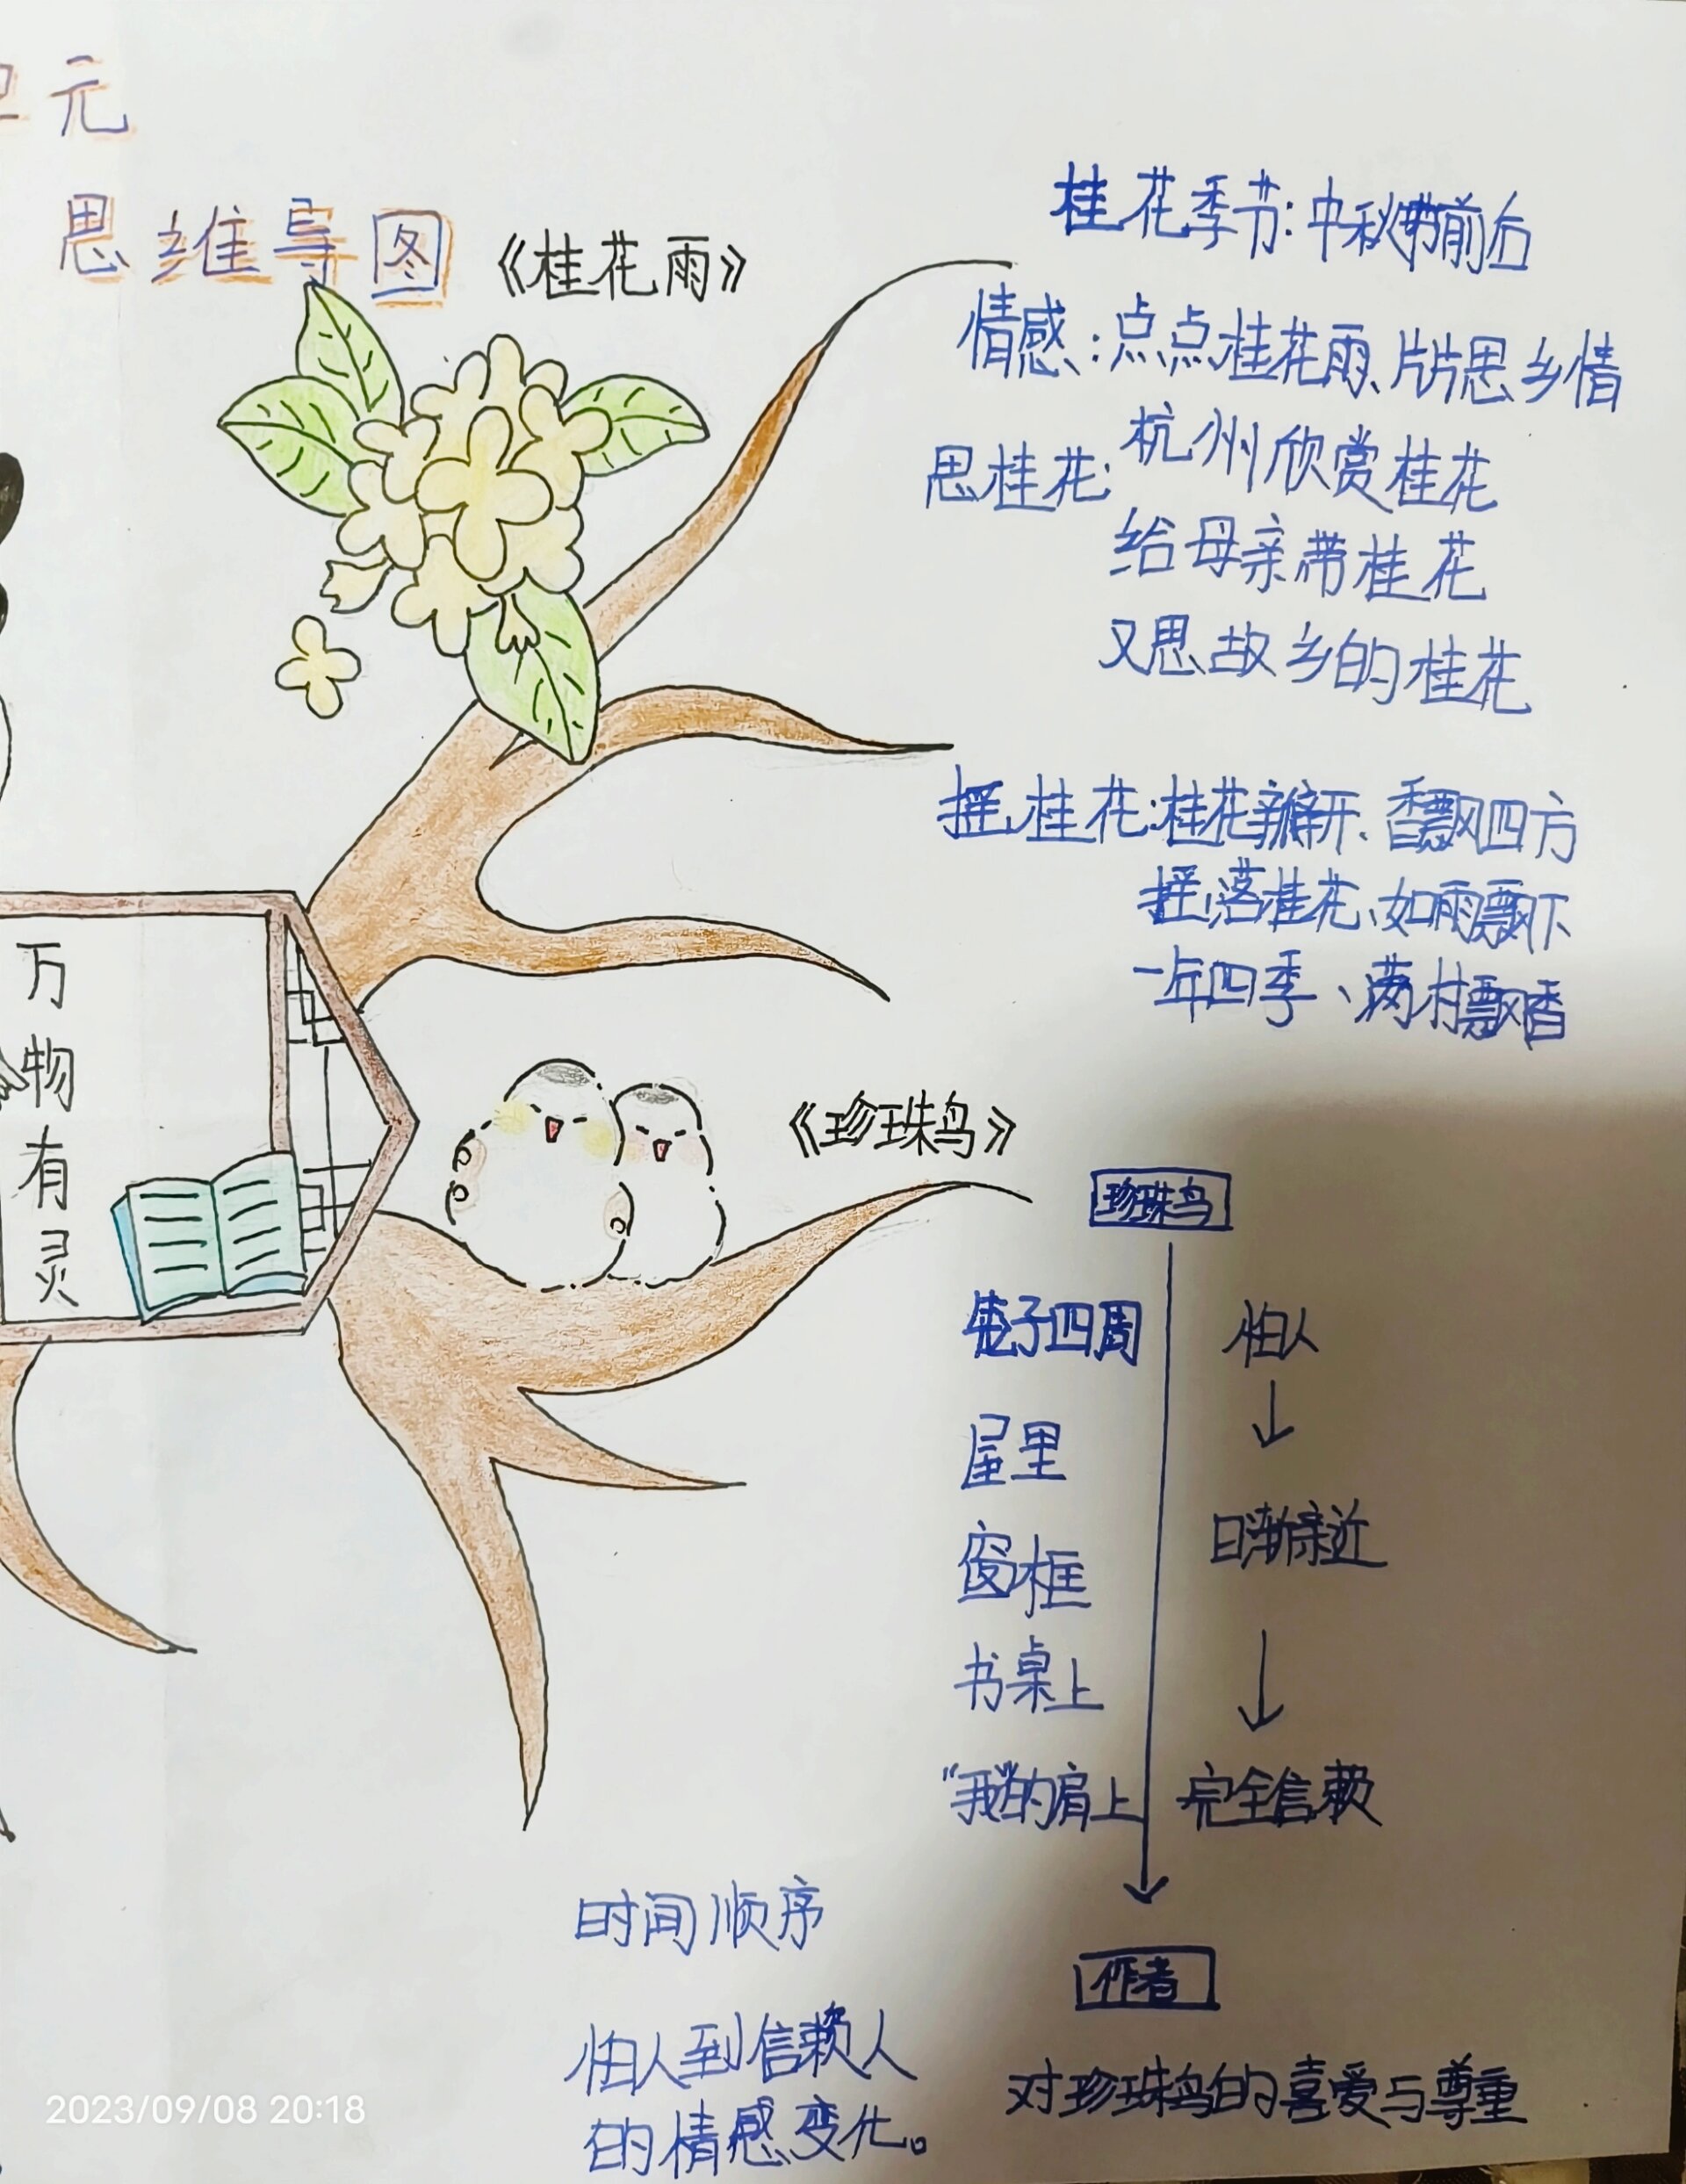 元
思维导图
《桂花雨》
桂花季节:中秋节前后
情感:点点桂花雨、片片思乡情
思桂花:杭州欣赏桂花
给母亲带桂花
又思故乡的桂花
摇桂花:桂花瓣开、香飘四方
摇落桂花、如雨飘下
一年四季、满村飘香
万物有灵
《珍珠鸟》
珍珠鸟
笼子四周
怕人
↓
屋里
日渐亲近
窗框
书桌上
↓
"我"的肩上
完全信赖
作者
对珍珠鸟的喜爱与尊重
时间顺序
怕人到信赖人
的情感变化。
2023/09/08 20:18